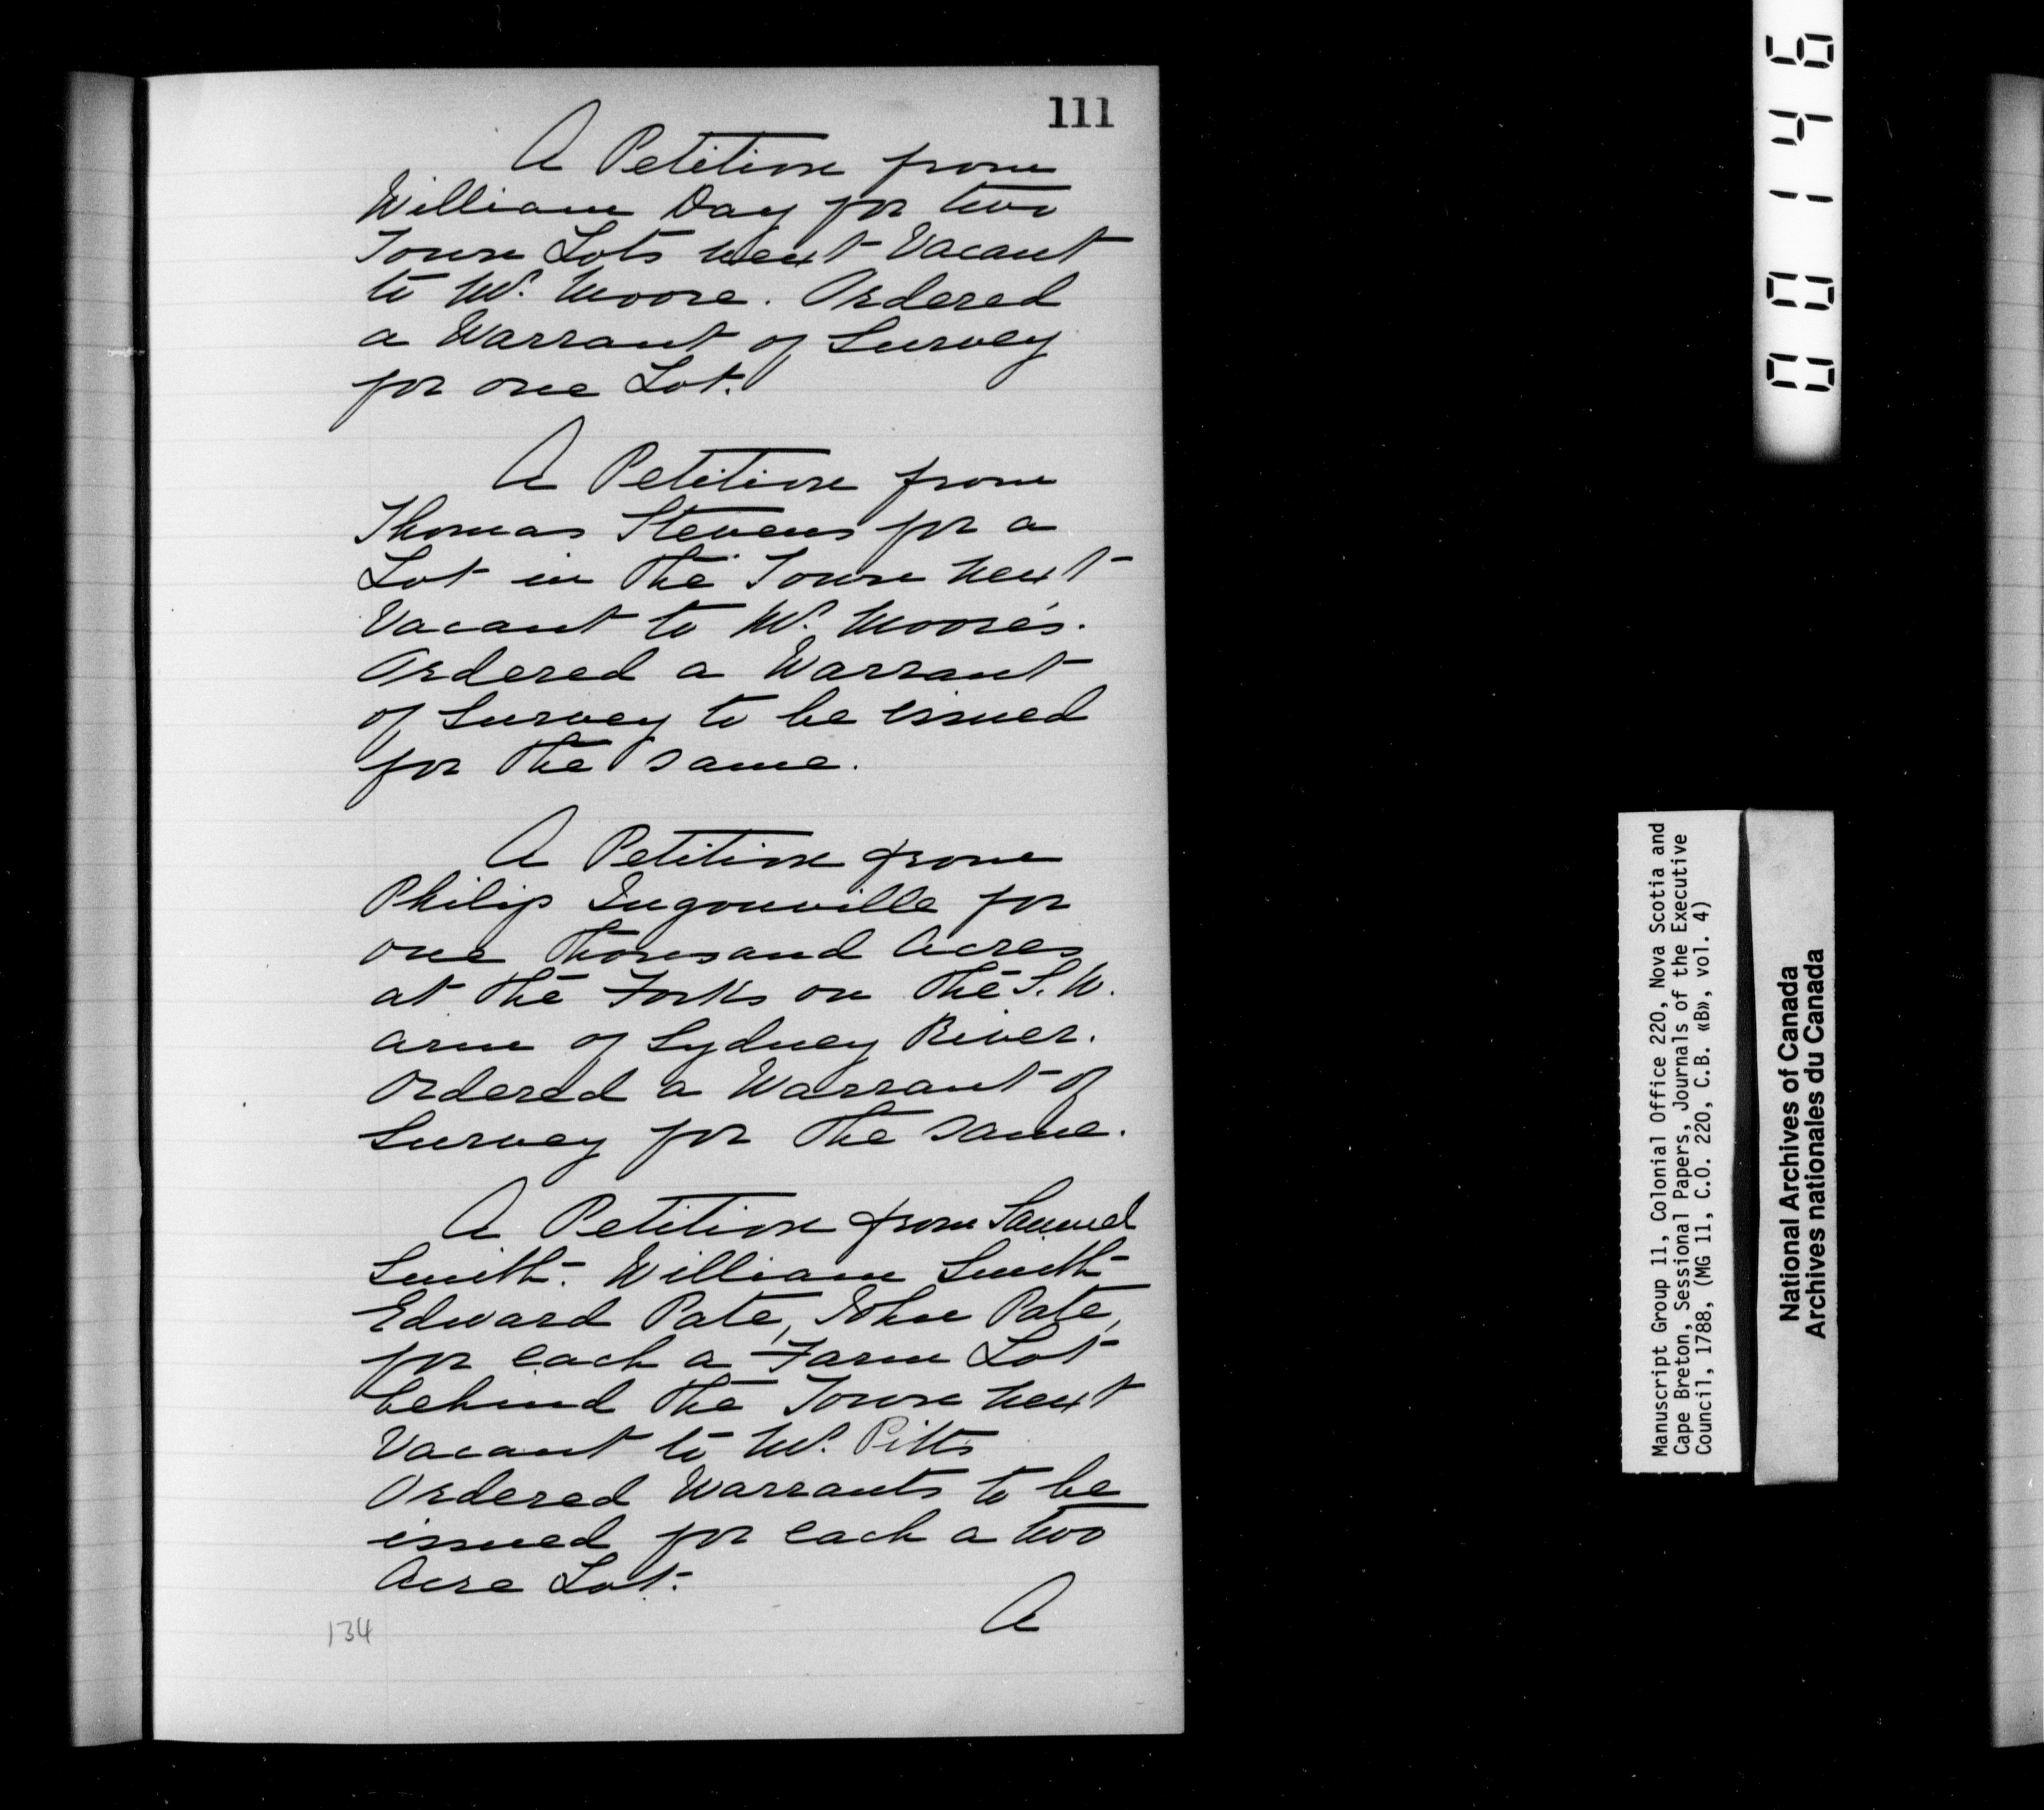 111
A Petition from
William Day for two
Town Lots next Vacant
to Mr. Moore. Ordered
a Warrant of Survey
for one Lot.
A Petition from
Thomas Stevens for a
Lot in the Town next
Vacant to Mr. Moore's.
Ordered a Warrant
of Survey to be issued
for the same.
A Petition from
Philip Ingouville for
one thousand Acres
at the Forks on the S. W.
arm of Sydney River.
Ordered a Warrant of
Survey for the same.
A Petition from Samuel
Smith. William Smith
Edward Pate, John Pate,
for each a Farm Lot
behind the Town next
Vacant to Mr. Pitts
Ordered Warrants to be
issued for each a two
Acre Lot.
A
134
00146
Manuscript Group 11, Colonial Office 220, Nova Scotia and
Cape Breton, Sessional Papers, Journals of the Executive
Council, 1788, (MG 11, C.O. 220, C.B. «B», vol. 4)
National Archives of Canada
Archives nationales du Canada